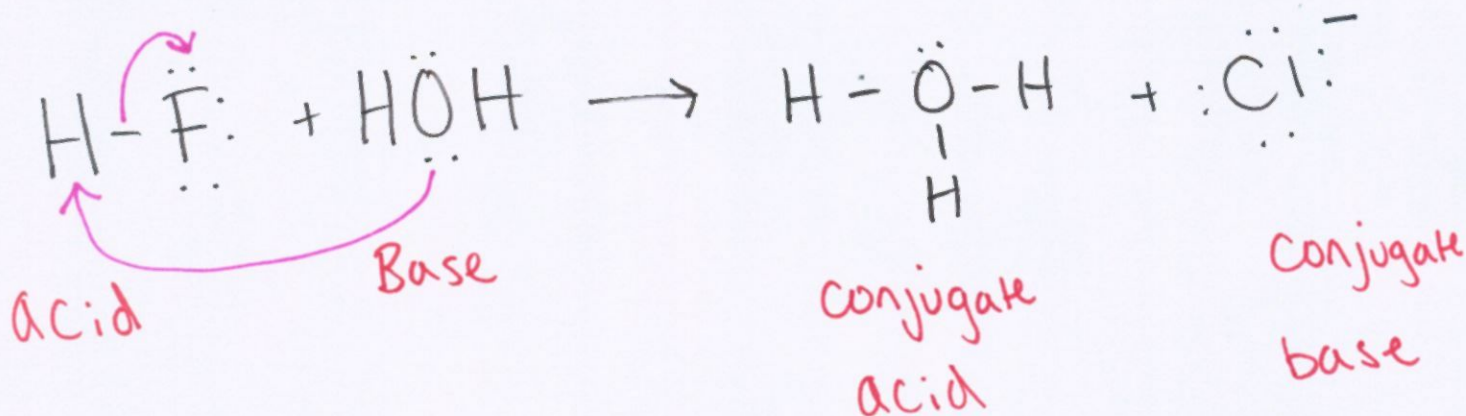 H-F + HOH → H-O-H + Cl⁻
H
acid
Base
conjugate
acid
Conjugate
base